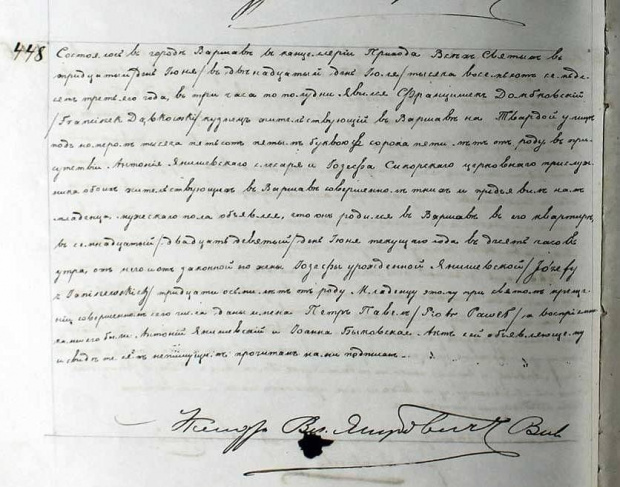 448
Состоялось въ городѣ Варшавѣ въ канцеляріи Прихода Всѣхъ Святыхъ въ
тридцатый день Іюня /въ двѣнадцатый день Іюля/ тысяча восемьсотъ семьде-
сятъ третьяго года, въ три часа по полудни. Явился Францишекъ Домбковскій
/Franciszek Dąbkowski/ кузнецъ жительствующій въ Варшавѣ на Твардой улицѣ
подъ номеромъ тысяча пятьсотъ пятымъ буквою сорока пяти лѣтъ отъ роду въ при-
сутствіи Антонія Янишевскаго слесаря и Іозефа Сикорскаго церковнаго прислуж-
ника обоихъ жительствующихъ въ Варшавѣ совершеннолѣтнихъ и предъявилъ намъ
младенца мужескаго пола объявляя, что онъ родился въ Варшавѣ въ его квартирѣ,
въ семнадцатый /двадцать девятый/ день Іюня текущаго года въ десять часовъ
утра, отъ него и отъ законной его жены Іозефы урожденной Янишевской /Józefy
z Janiszewskich/ тридцати осьми лѣтъ отъ роду. Младенцу этому при святомъ креще-
ніи совершенномъ сего числа даны имена Петръ Павелъ /Piotr Paweł/ а воспріем-
никами его были Антоній Янишевскій и Іоанна Быковская. Актъ сей объявляющему
и свидѣтелямъ неграмотнымъ прочитанъ нами подписанъ.